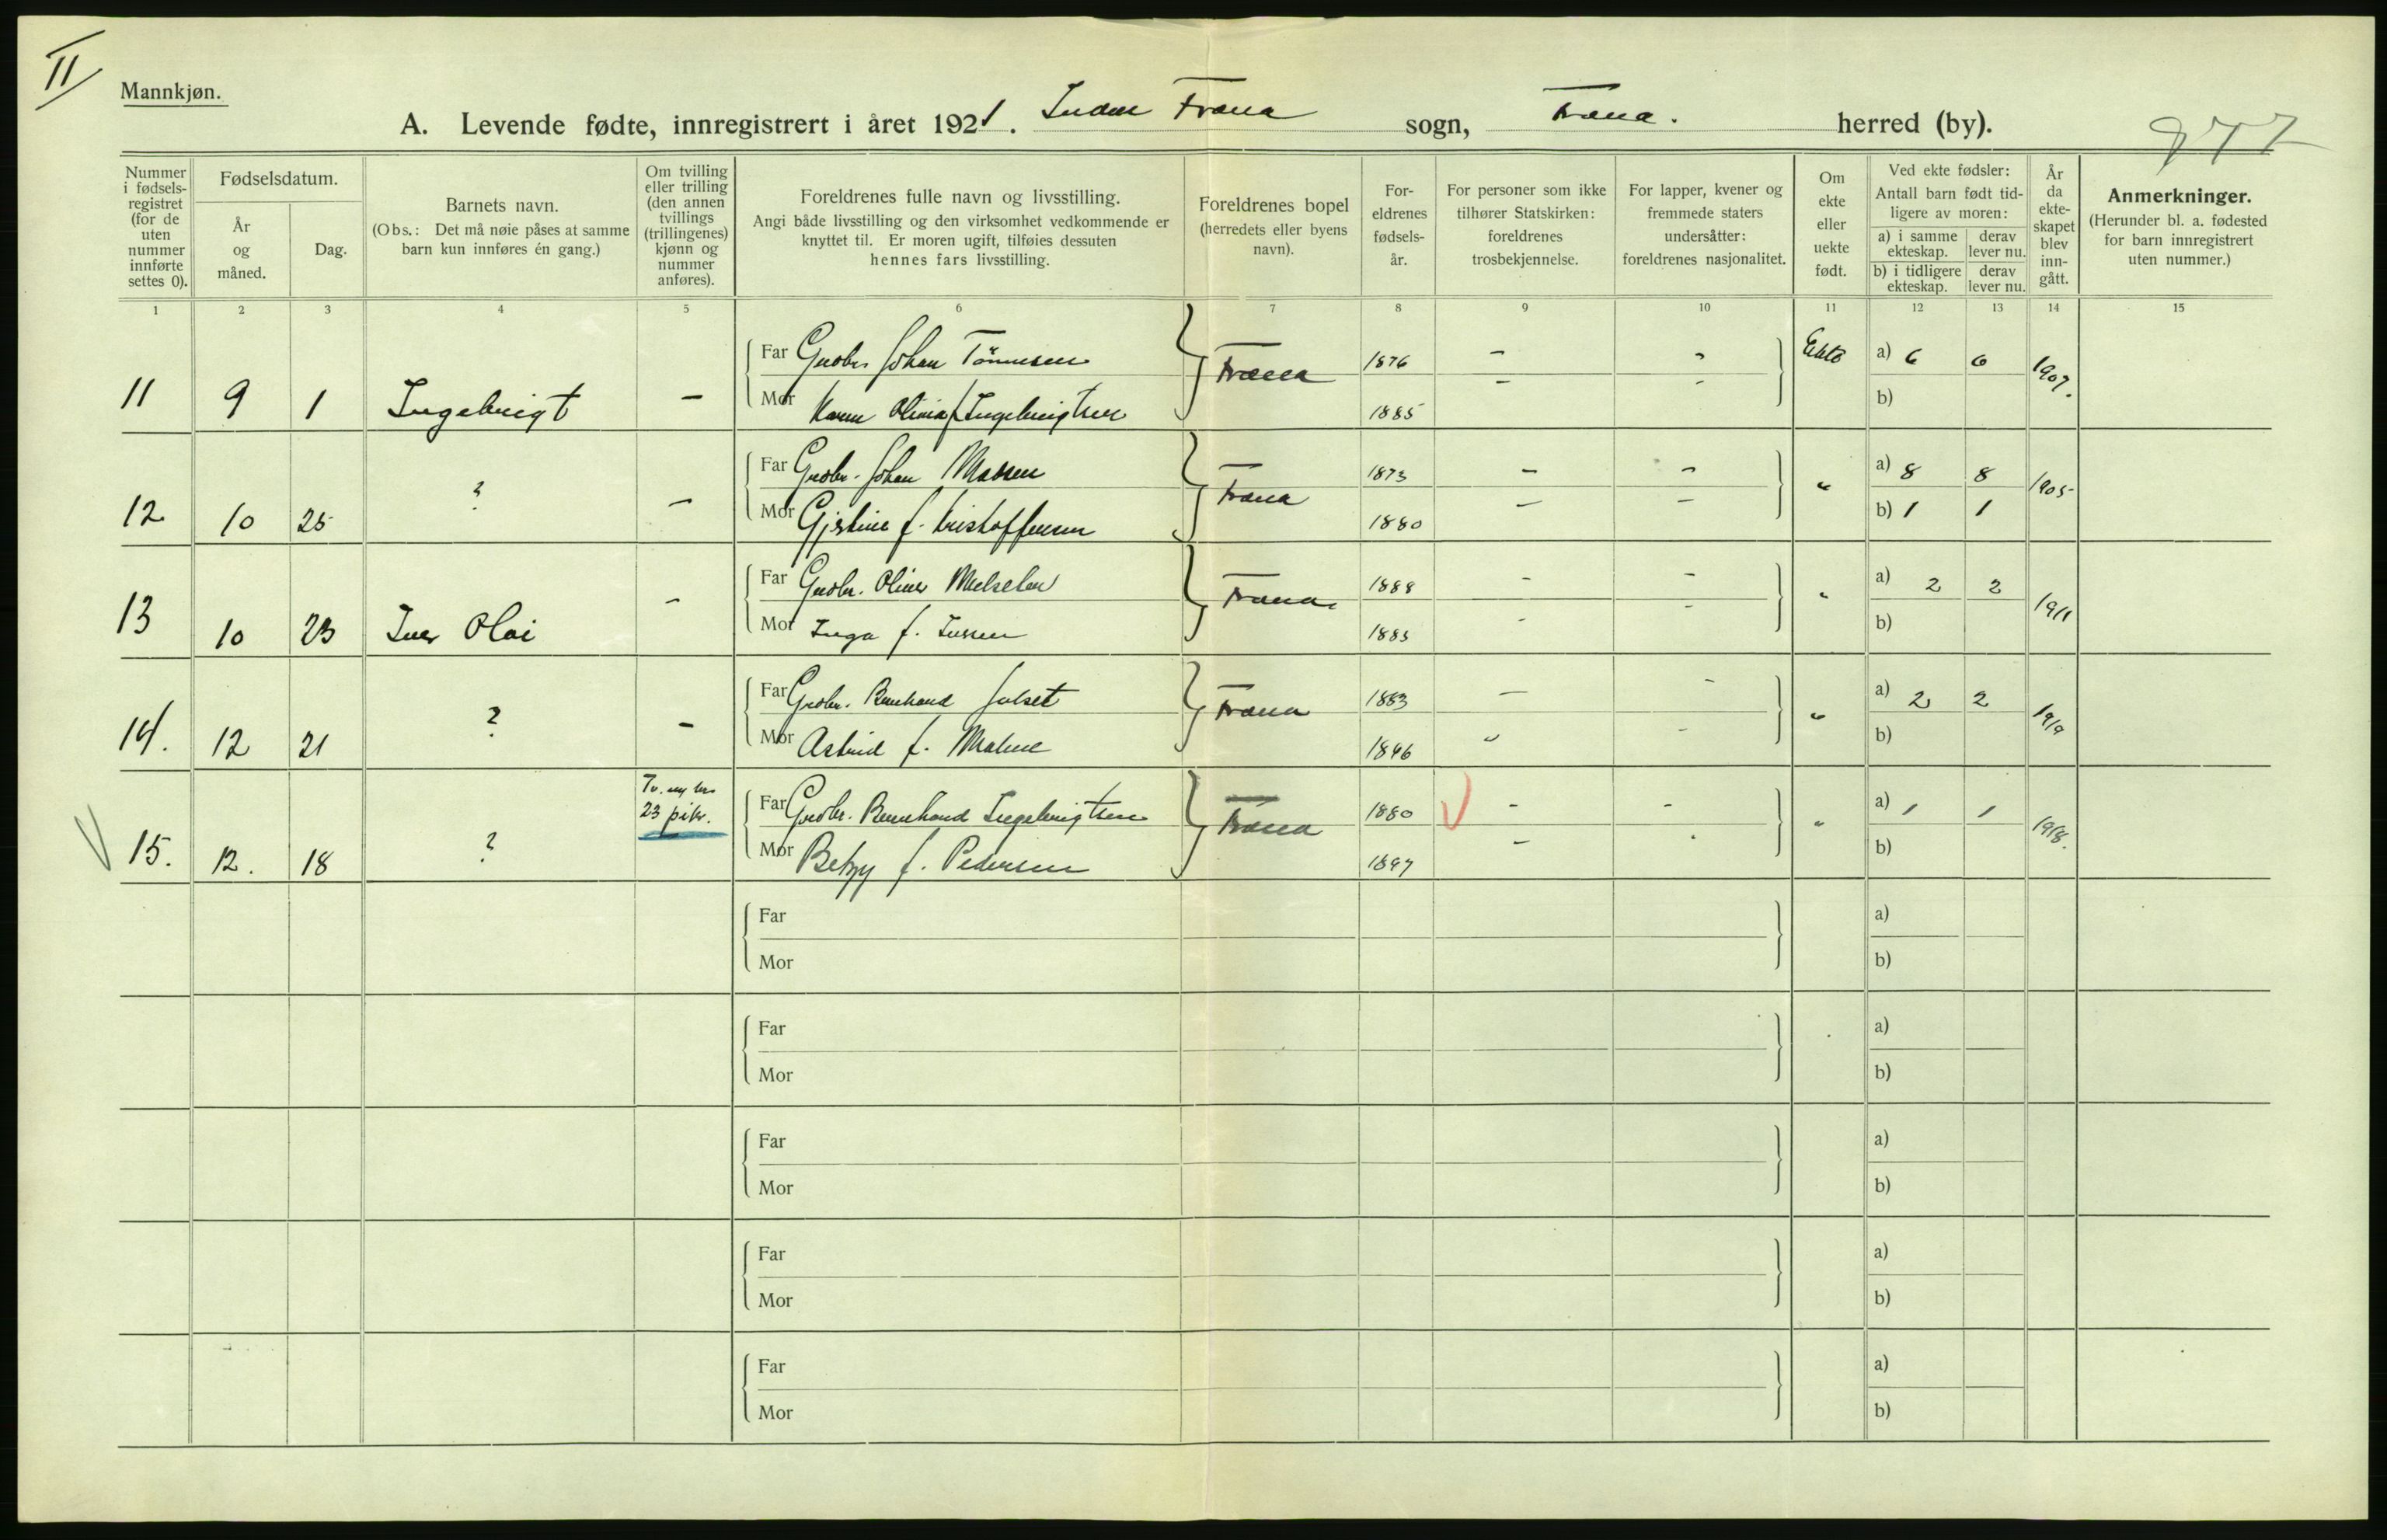 II
Mannkjøn.
A. Levende fødte, innregistrert i året 1921. Indre Fræna sogn, Fræna. herred (by).
Nummer i fødsels-registret (for de uten nummer innførte settes 0).
Fødselsdatum.
År og måned.
Dag.
Barnets navn.
(Obs.: Det må nøie påses at samme barn kun innføres én gang.)
Om tvilling eller trilling (den annen tvillings (trillingenes) kjønn og nummer anføres).
Foreldrenes fulle navn og livsstilling.
Angi både livsstilling og den virksomhet vedkommende er knyttet til. Er moren ugift, tilføies dessuten hennes fars livsstilling.
Foreldrenes bopel (herredets eller byens navn).
For-eldrenes fødsels-år.
For personer som ikke tilhører Statskirken: foreldrenes trosbekjennelse.
For lapper, kvener og fremmede staters undersåtter: foreldrenes nasjonalitet.
Om ekte eller uekte født.
Ved ekte fødsler:
Antall barn født tid-ligere av moren:
a) i samme ekteskap. derav lever nu.
b) i tidligere ekteskap. derav lever nu.
År da ekte-skapet blev inn-gått.
Anmerkninger.
(Herunder bl. a. fødested for barn innregistrert uten nummer.)
1 2 3 4 5 6 7 8 9 10 11 12 13 14 15
Far Gårdbr. Johan Tønnesen 1876 - - Ekte a) 6 6 1907.
11 9 1 Ingebrigt - Mor Karen Olivia f. Ingebrigtsen Fræna 1885 - - b)
Far Gårdbr. Johan Madsen 1873 - - " a) 8 8 1905
12 10 25 ? - Mor Gjertine f. Kristoffersen Fræna 1880 - - b) 1 1
Far Gårdbr. Oliver Melseter 1888 - - " a) 2 2 1911
13 10 23 Iver Olai - Mor Inga f. Iversen Fræna 1885 - - b)
Far Gårdbr. Bernhard Julset 1883 - - " a) 2 2 1919
14. 12 21 ? - Mor Astrid f. Malme Fræna 1896 - - b)
Tv. m/ nr. 23 pike.
Far Gårdbr. Bernhard Ingebrigtsen 1880 - - " a) 1 1 1918.
15. 12. 18 ? Mor Betzy f. Pedersen Fræna 1897 - b)
Far a)
Mor b)
Far a)
Mor b)
Far a)
Mor b)
Far a)
Mor b)
Far a)
Mor b)